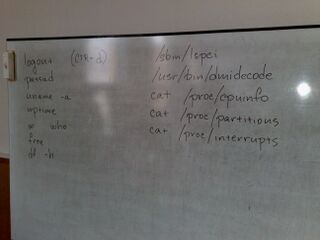 logout (CTR-d)
passwd
uname -a
uptime
w who
free
df -h
/sbin/lspci
/usr/bin/dmidecode
cat /proc/cpuinfo
cat /proc/partitions
cat /proc/interrupts